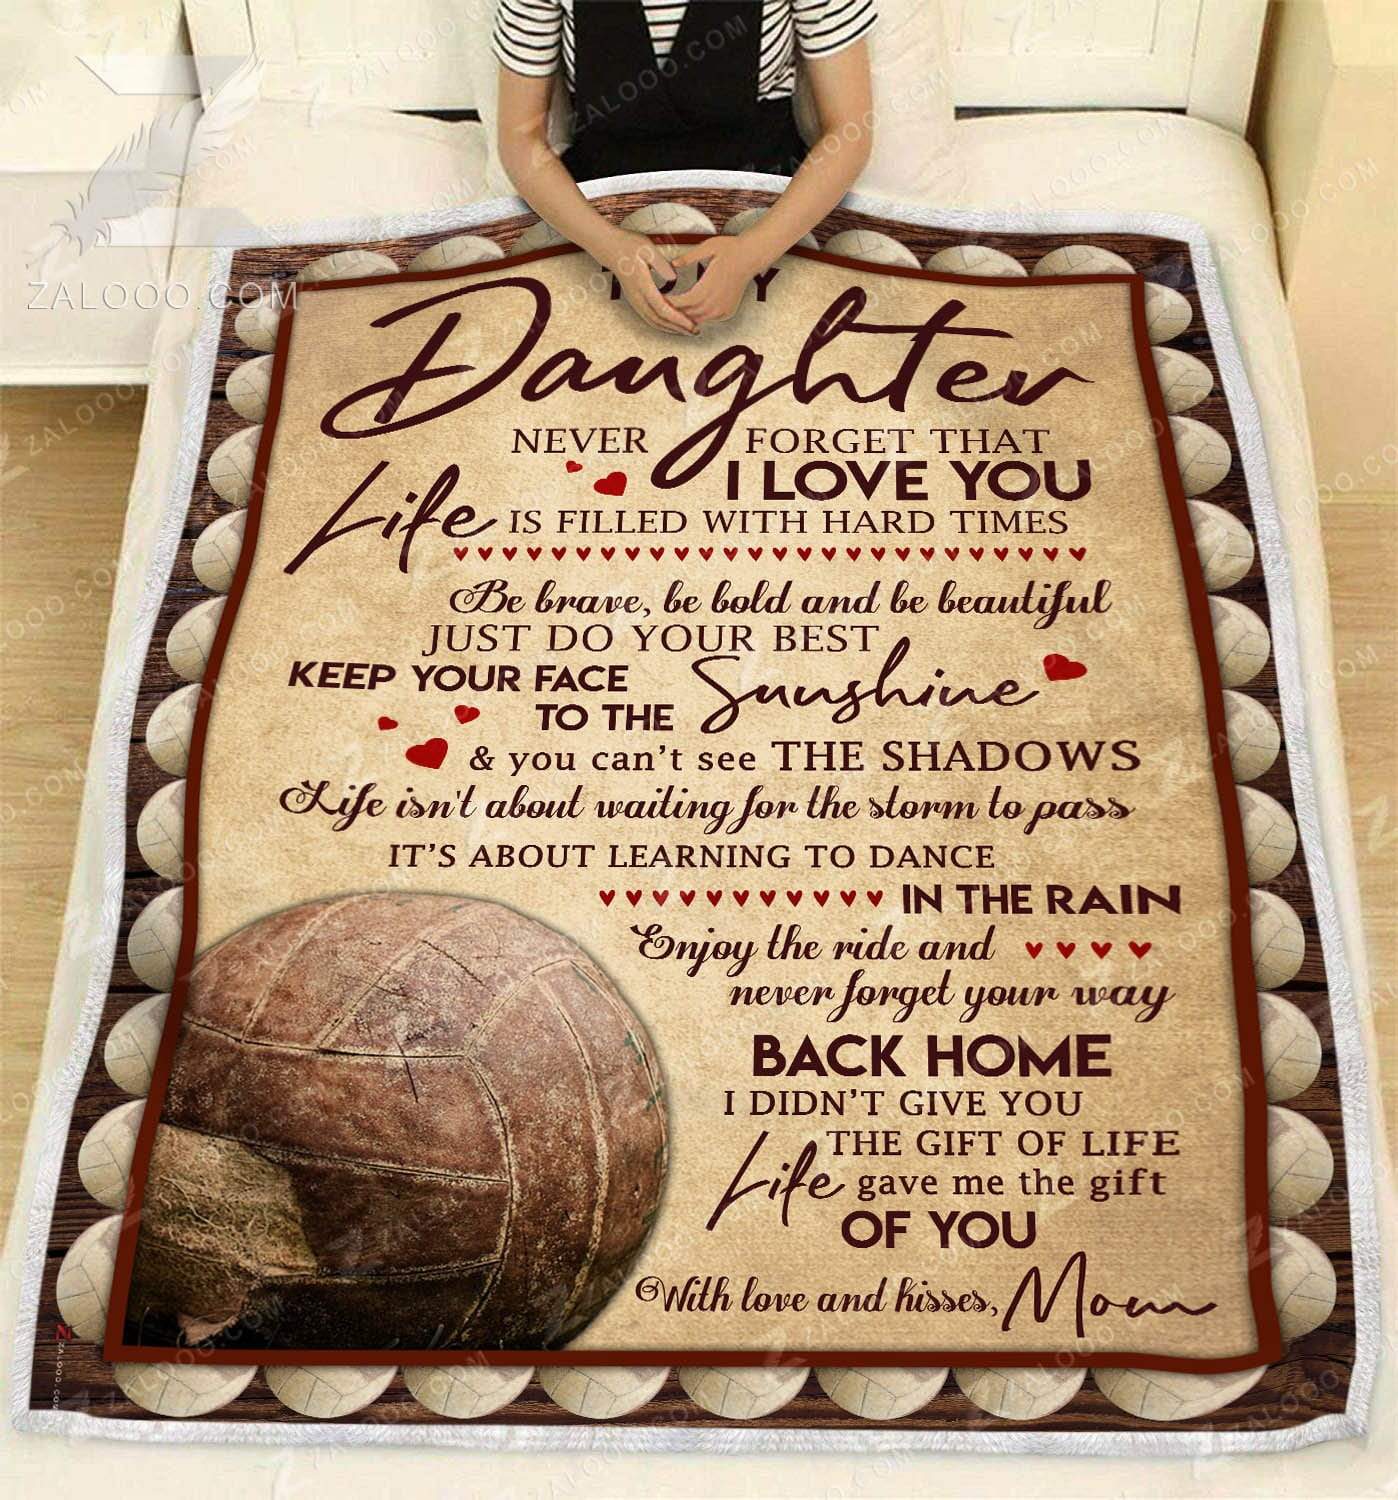 ZALOOO.COM
TO MY
Daughter
NEVER FORGET THAT
I LOVE YOU
Life IS FILLED WITH HARD TIMES
Be brave, be bold and be beautiful
JUST DO YOUR BEST
KEEP YOUR FACE
TO THE Sunshine
& you can't see THE SHADOWS
Life isn't about waiting for the storm to pass
IT'S ABOUT LEARNING TO DANCE
IN THE RAIN
Enjoy the ride and
never forget your way
BACK HOME
I DIDN'T GIVE YOU
THE GIFT OF LIFE
Life gave me the gift
OF YOU
With love and kisses, Mom